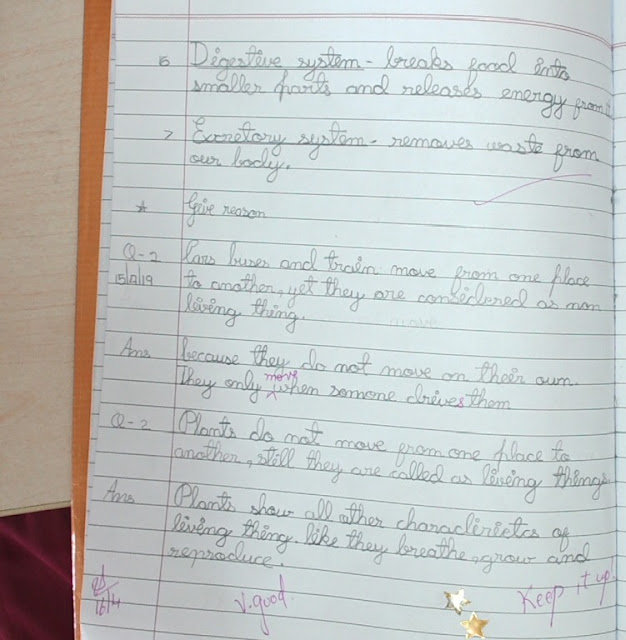 5 Digestive system - breaks food into
smaller parts and releases energy from it
7 Excretory system - removes waste from
our body.
* Give reason
Q-2 Cars buses and train move from one place
15/4/19 to another, yet they are considered as non
living thing.
Ans because they do not move on their own.
move
They only ^ when somone drives them
Q-2 Plants do not move from one place to
another, still they are called as living things
Ans Plants show all other characterictcs of
living thing. like they breathe, grow and
reproduce.
16/4 V.good. Keep it up